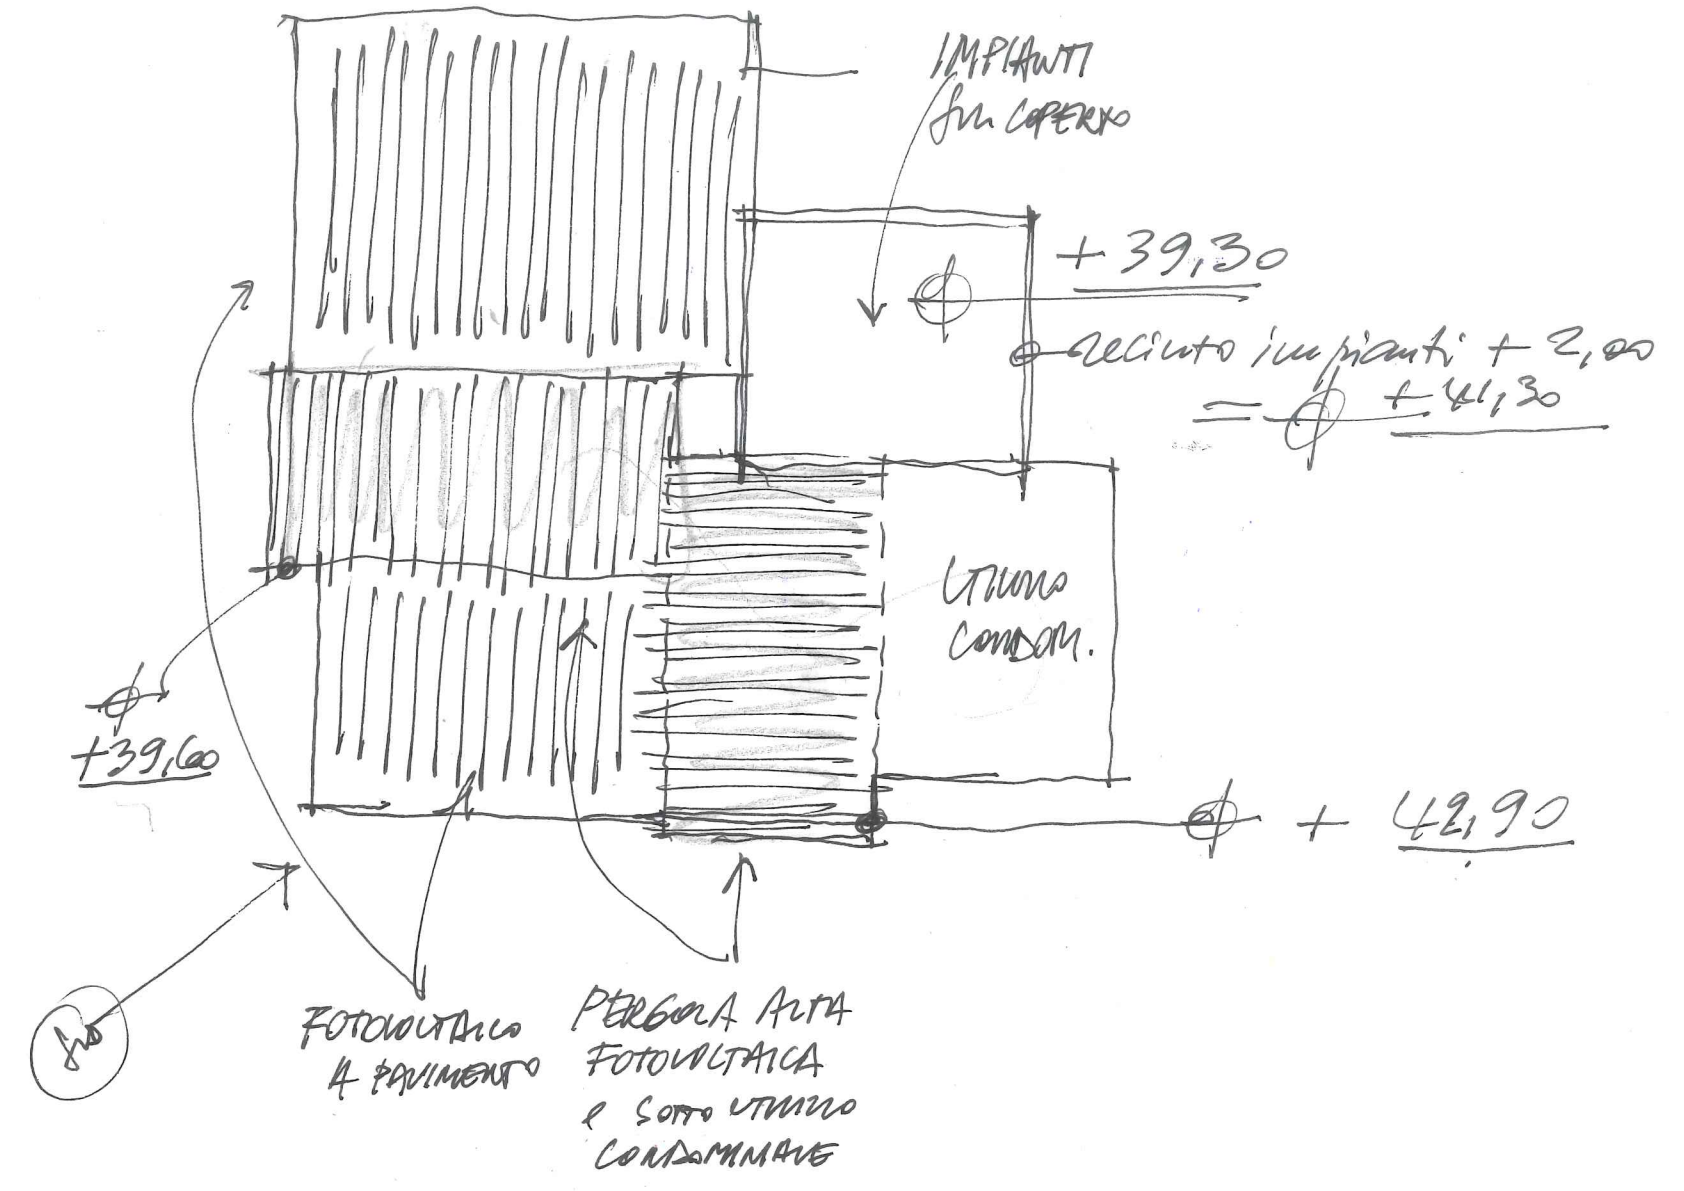 IMPIANTI
sul COPERTO
+ 39,30
recinto impianti + 2,00
= + 41,30
UTILIZZO
CONDOM.
+39,60
+ 42,90
FOTOVOLTAICO
A PAVIMENTO
PERGOLA ALTA
FOTOVOLTAICA
e SOTTO UTILIZZO
CONDOMINIALE